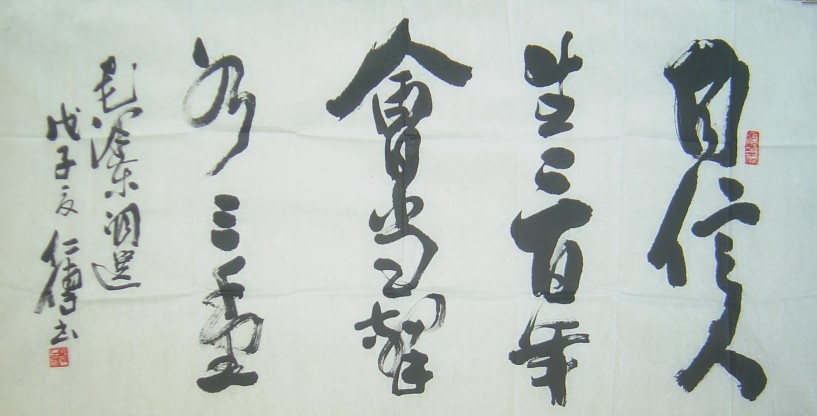 自信人
生二百年
會當擊
水三千里
毛澤東詞選
戊子夏仁書